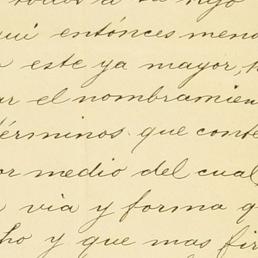 todos a su hijo
qui entónces meno
este ya mayor,
ar el nombramien
términos que conte
or medio del cual
via y forma q
ho y que mas fir